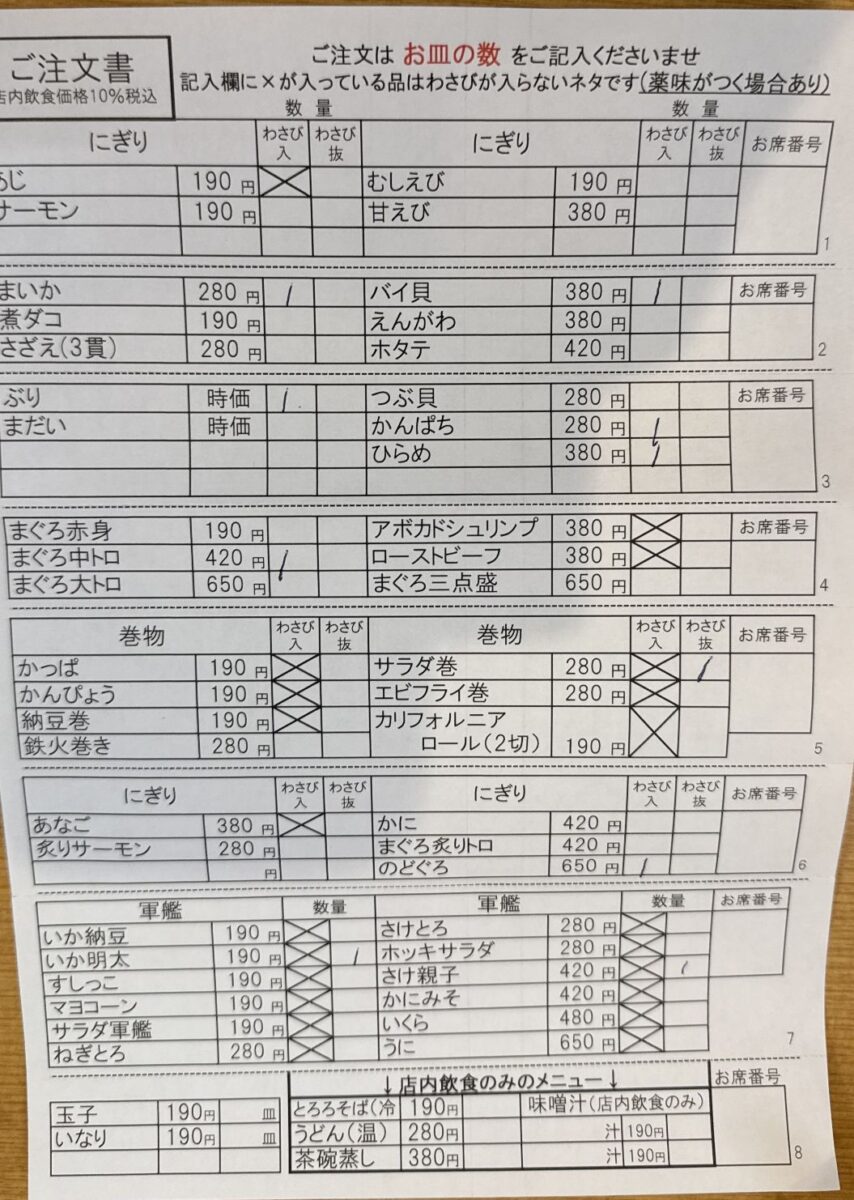 ご注文書
店内飲食価格10%税込
ご注文は お皿の数 をご記入くださいませ
記入欄に×が入っている品はわさびが入らないネタです(薬味がつく場合あり)
数 量 数 量
にぎり わさび入 わさび抜 にぎり わさび入 わさび抜 お席番号
あじ 190 円 むしえび 190 円
サーモン 190 円 甘えび 380 円
1
まいか 280 円 1 バイ貝 380 円 1 お席番号
煮ダコ 190 円 えんがわ 380 円
さざえ(3貫) 280 円 ホタテ 420 円 2
ぶり 時価 1 つぶ貝 280 円 お席番号
まだい 時価 かんぱち 280 円 1
ひらめ 380 円 1
3
まぐろ赤身 190 円 アボカドシュリンプ 380 円 お席番号
まぐろ中トロ 420 円 1 ローストビーフ 380 円
まぐろ大トロ 650 円 まぐろ三点盛 650 円 4
巻物 わさび入 わさび抜 巻物 わさび入 わさび抜 お席番号
かっぱ 190 円 サラダ巻 280 円 1
かんぴょう 190 円 エビフライ巻 280 円
納豆巻 190 円 カリフォルニア
鉄火巻き 280 円 ロール(2切) 190 円 5
にぎり わさび入 わさび抜 にぎり わさび入 わさび抜 お席番号
あなご 380 円 かに 420 円
炙りサーモン 280 円 まぐろ炙りトロ 420 円
円 のどぐろ 650 円 1 6
軍艦 数量 軍艦 数量 お席番号
いか納豆 190 円 さけとろ 280 円
いか明太 190 円 1 ホッキサラダ 280 円
すしっこ 190 円 さけ親子 420 円 1
マヨコーン 190 円 かにみそ 420 円
サラダ軍艦 190 円 いくら 480 円
ねぎとろ 280 円 うに 650 円 7
↓店内飲食のみのメニュー↓ お席番号
玉子 190円 皿 とろろそば(冷 190円 味噌汁(店内飲食のみ)
いなり 190円 皿 うどん(温) 280円 汁 190円
茶碗蒸し 380円 汁 190円 8